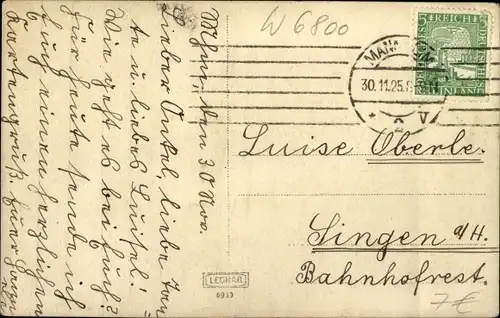 W 6800
5 REICH
MANNHEIM
30.11.25.
* 2 V
RHEINLAND
Mhm, den 30 Nov.
Lieber Onkel, liebe Tan
te u liebes Luisel!
Wie geht es bei Euch?
Für heute sende ich
Euch einen herzlichen
Kartengruß. Euer
Luise Oberle.
Singen a/H.
Bahnhofrest.
LEONAR
6933
7€